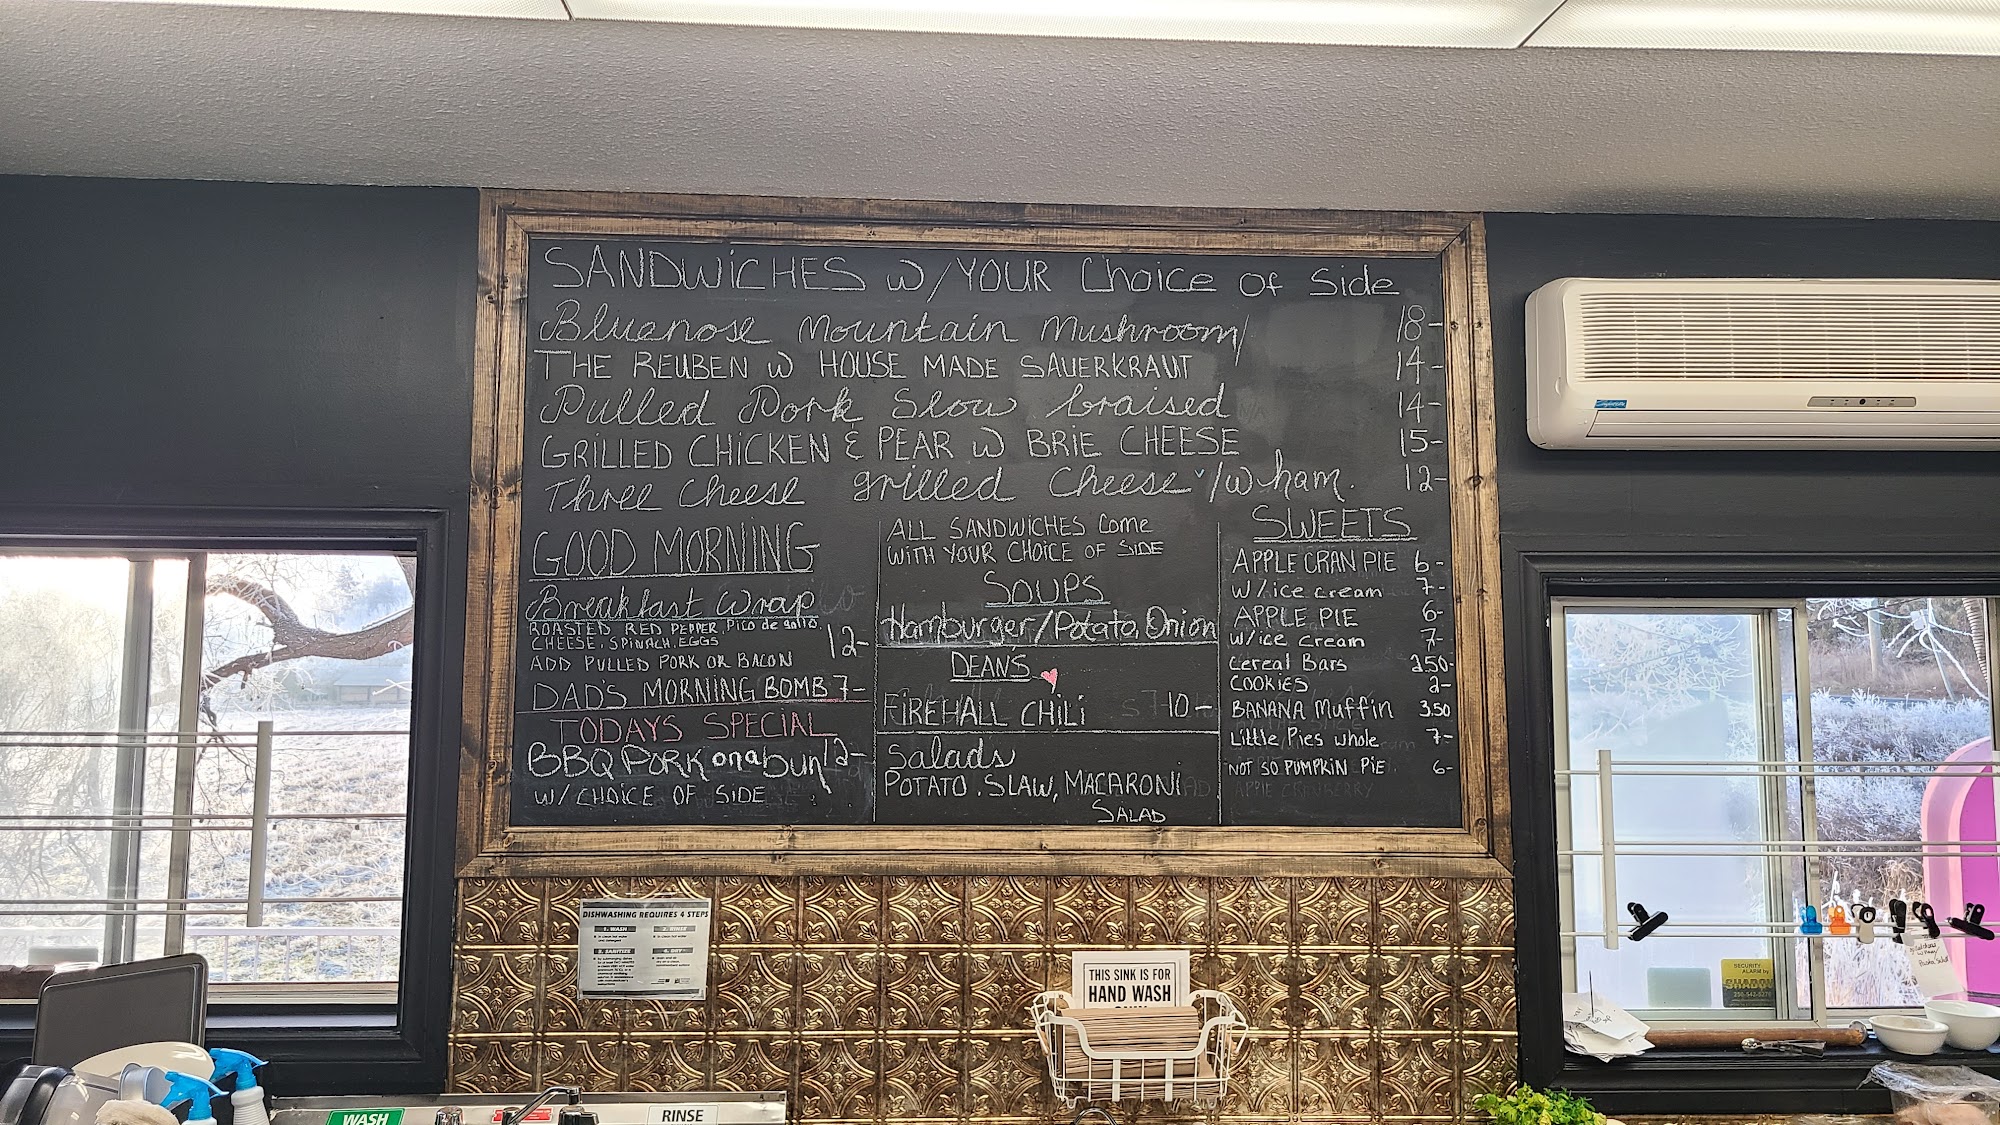 SANDWiCHES w/YOUR Choice of Side
Bluenose Mountain Mushroom/ 18-
THE REUBEN W HOUSE MADE SAUERKRAUT 14-
Pulled Pork Slow braised 14-
GRiLLED CHiCKEN & PEAR W BRiE CHEESE 15-
Three Cheese grilled Cheese /w ham. 12-
GOOD MORNiNG
Breakfast Wrap
ROASTED RED PEPPER, Pico de gallo,
CHEESE, SPINACH, EGGS 12-
ADD PULLED PORK OR BACON
DAD'S MORNING BOMB 7-
TODAYS SPECIAL
BBQ PORK on a bun 12-
W/ CHOICE OF SIDE
ALL SANDWiCHES Come
WITH YOUR CHOiCE OF SIDE
SOUPS
Hamburger/Potato, Onion
DEAN'S
FIREHALL CHiLi 10-
Salads
POTATO, SLAW, MACARONi
SALAD
SWEETS
APPLE CRAN PIE 6-
W/ice cream 7-
APPLE PIE 6-
W/ice Cream 7-
Cereal Bars 2.50-
COOKiES 2-
BANANA Muffin 3.50
Little Pies whole 7-
NOT SO PUMPKIN PIE 6-
DISHWASHING REQUIRES 4 STEPS
1. WASH
2. RINSE
3. SANITIZE
4. DRY
THIS SINK IS FOR
HAND WASH
SECURITY
ALARM by
SHADOW
WASH
RINSE